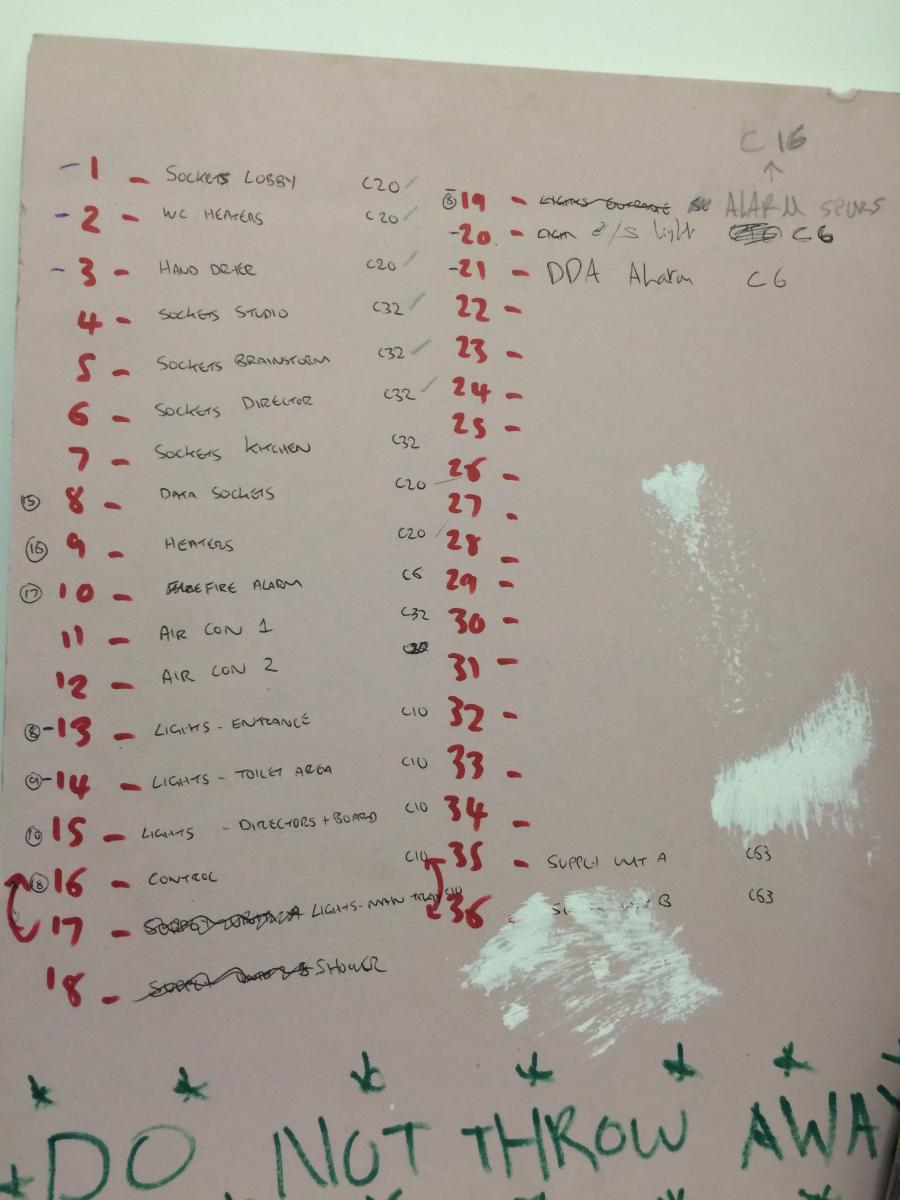 - 1 - SOCKETS LOBBY C20
- 2 - WC HEATERS C20
- 3 - HAND DRIER C20
4 - SOCKETS STUDIO C32
5 - SOCKETS BRAINSTORM C32
6 - SOCKETS DIRECTOR C32
7 - SOCKETS KITCHEN C32
15 8 - DATA SOCKETS C20
16 9 - HEATERS C20
17 10 - FIRE ALARM C6
11 - AIR CON 1 C32
12 - AIR CON 2
8 - 13 - LIGHTS - ENTRANCE C10
9 - 14 - LIGHTS - TOILET AREA C10
10 15 - LIGHTS - DIRECTORS + BOARD C10
18 16 - CONTROL C10
17 - LIGHTS - MAIN C10
18 - SHOWER
C 16
19 - LIGHTS ENTRANCE ALARM SPURS
- 20 - light C6
- 21 - DDA Alarm C6
22 -
23 -
24 -
25 -
26 -
27 -
28 -
29 -
30 -
31 -
32 -
33 -
34 -
35 - SUPPLY UNIT A C63
36 - B C63
DO NOT THROW AWAY